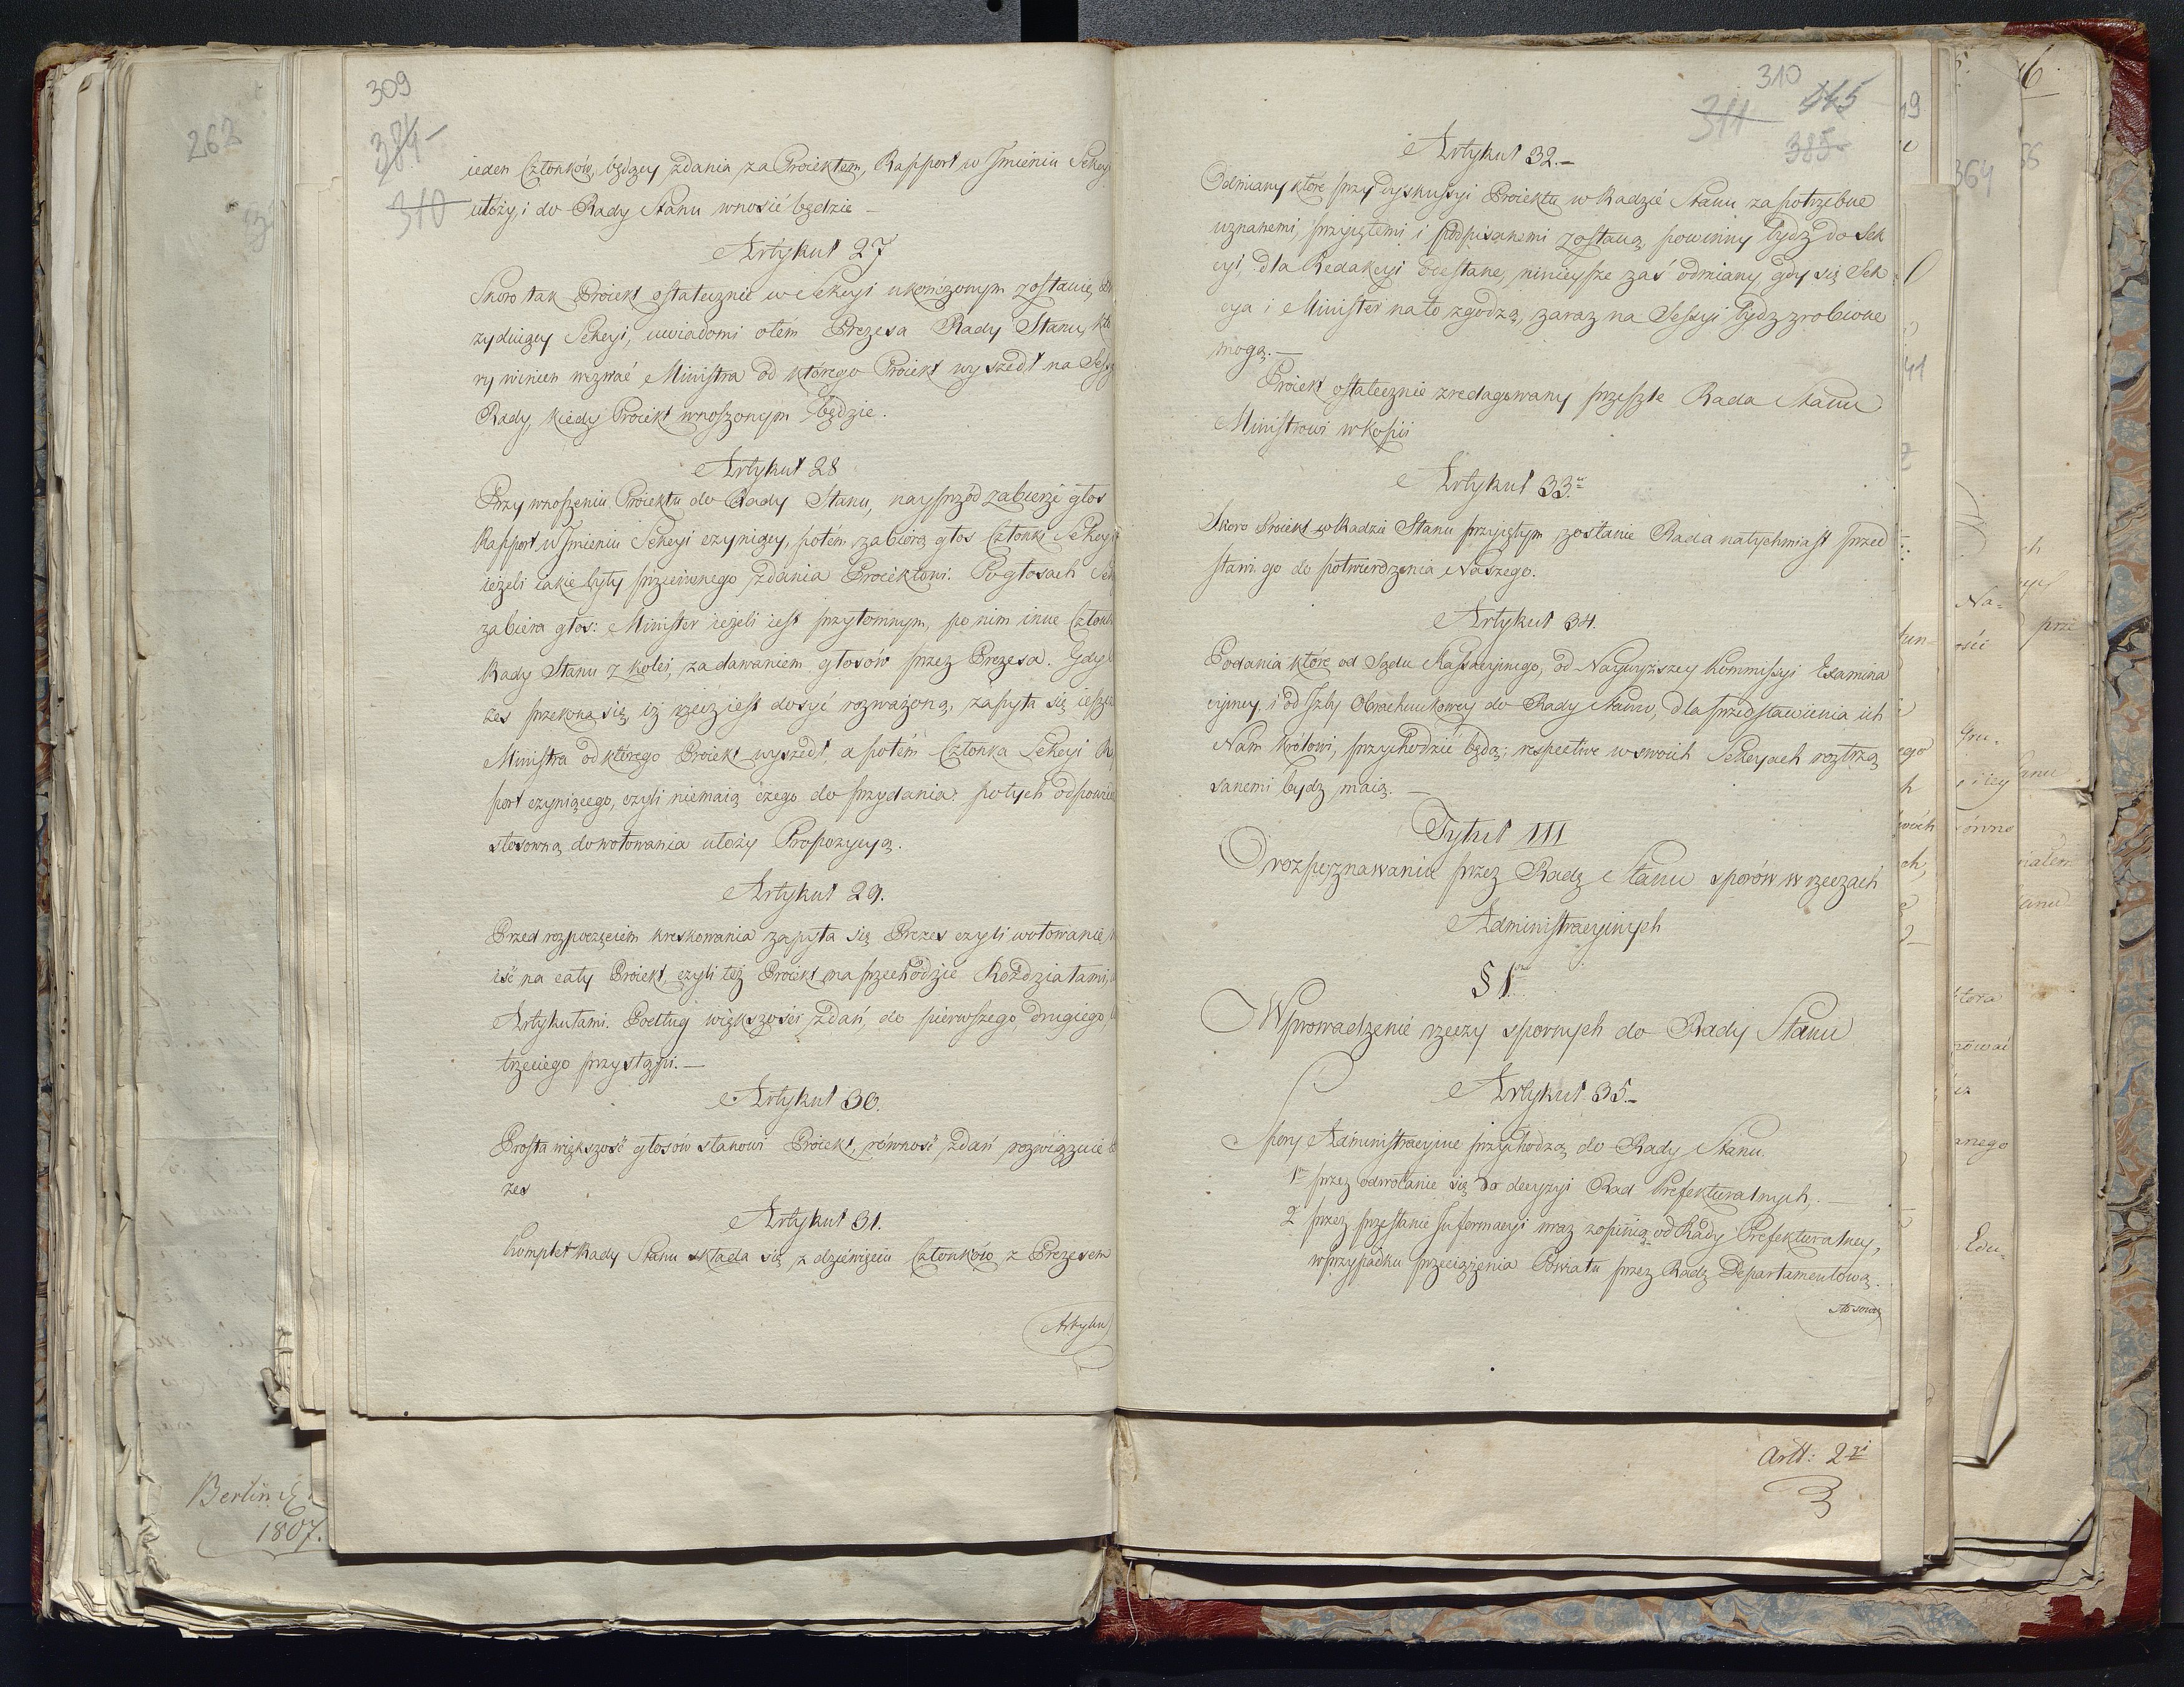 309
384
310
ieden Członków, będący zdania za Proiektem, Rapport w Jmieniu Sekcyi
ułoży, i do Rady Stanu wnosić będzie –
Artykuł 27
Skoro tak Proiekt ostatecznie w Sekcyi ukończonym zostanie,
zyduiący Sekcyi, uwiadomi otém Prezesa Rady Stanu, któ
ry winien wezwać Ministra od którego Proiekt wyszedł na Sessyą
Rady, kiedy Proiekt wnoszonym będzie.
Artykuł 28
Przy wnoszeniu Proiektu do Rady Stanu, nayprzód zabierze głos
Rapport w Jmieniu Sekcyi czyniący, potém zabiorą głos Członki Sekcyi
ieżeli iakie były przeciwnego zdania Proiektowi. Po głosach Sek
zabiera głos: Minister ieżeli iest przytomnym, po nim inne Członk
Rady Stanu z kolei, za dawaniem głosów przez Prezesa. Gdy
zes przekona się, iż rzecz iest dosyć rozważoną, zapyta się ieszcze
Ministra od którego Proiekt wyszedł, a potém Członka Sekcyi R
port czyniącego, czyli niemaią czego do przydania: po tych odpowie
stosowną do wotowania ułoży Propozycyą.
Artykuł 29.
Przed rozpoczęciem kreskowania zapyta się Prezes czyli wotowanie
iść na cały Proiekt, czyli też Proiekt ma przechodzić Rozdziałami,
Artykułami. Podług większości zdań, do pierwszego, drugiego,
trzeciego przystąpi. –
Artykuł 30.
Prosta większość głosów stanowi Proiekt, równość zdań rozwięzuie
zes
Artykuł 31.
Komplet Rady Stanu składa się z dziewięciu Członków z Prezesem
Artykuł
310
311 445
385
Artykuł 32. –
Odmiany które przy dyskussyi Proiektu w Radzie Stanu za potrzebne
uznanemi, przyiętemi i podpisanemi zostaną, powinny bydz do Sek
cyi, dla Redakcyi odesłane, mnieysze zaś odmiany, gdy się Sek
cya i Minister na to zgodzą, zaraz na Sessyi bydz zrobione
mogą. –
Proiekt ostatecznie zredagowany prześzle Rada Stanu
Ministrowi w kopii
Artykuł 33.
Skoro Proiekt w Radzie Stanu przyiętym zostanie Rada natychmiast przed
stawi go do potwierdzenia Naszego.
Artykuł 34.
Podania które od Sądu Kassacyinego, od Naywyższey Kommissyi Examina
cyiney, i od Jzby Obrachunkowey do Rady Stanu, dla przedstawienia ich
Nam Królowi, przychodzić będą; respective w swoich Sekcyach roztrzą
sanemi bydz maią. –
Tytuł III
O rozpoznawaniu przez Radę Stanu sporów w rzeczach
Administracyinych
§ 1
Wprowadzenie rzeczy spornych do Rady Stanu
Artykuł 35. –
Spory Administracyine przychodzą do Rady Stanu.
1 przez odwołanie się do decyzyi Rad Prefekturalnych, –
2 przez przesłanie Jnformacyi wraz z opinią od Rady Prefekturalney,
w przypadku przeciążenia Powiatu przez Radę Departamentową.
stosown
Artt: 2
262
Berlin
1807.
364